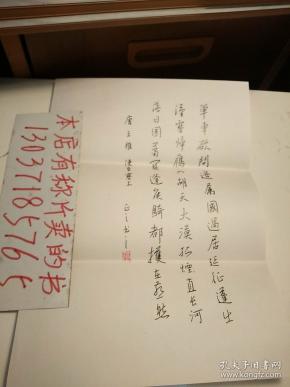 單車欲問邊屬國過居延征蓬出
漢塞歸雁入胡天大漠孤煙直長河
落日圓蕭關逢候騎都護在燕然
唐王維 使至塞上
本店有称斤卖的书
13037185765
孔夫子旧书网
www.kongfz.com